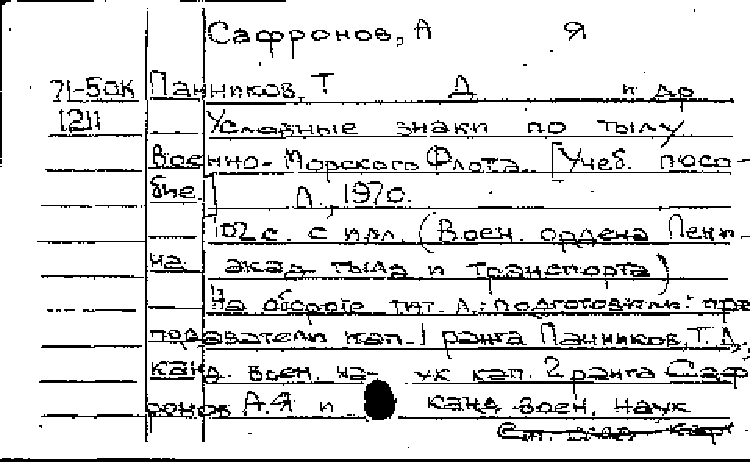 Сафронов, А Я
71-50К Панников, Т Д и др
1211 Условные знаки по тылу
Военно-Морского Флота. [Учеб. посо-
бие.] Л., 1970.
102 с. с илл. (Воен. ордена Лени-
на акад тыла и транспорта)
На обороте тит. л.: подготовили: пре
подаватели кап. 1 ранга Панников, Т. Д.,
канд. воен. на- ук кап. 2 ранга Саф
ронов А.Я и канд воен. наук